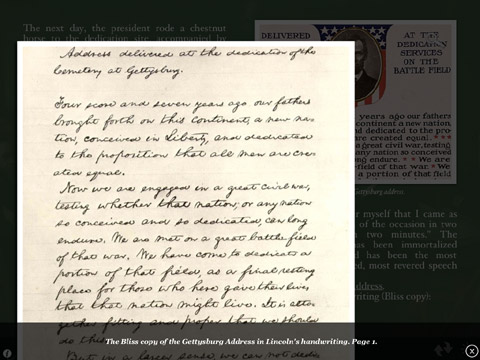 The next day, the president rode a chestnut
horse to the dedication site, accompanied by
Address delivered at the dedication of the
Cemetery at Gettysburg.
Four score and seven years ago our fathers
brought forth on this continent, a new na-
tion, conceived in Liberty, and dedicated
to the proposition that all men are cre-
ated equal.
Now we are engaged in a great civil war,
testing whether that nation, or any nation
so conceived and so dedicated, can long
endure. We are met on a great battle field
of that war. We have come to dedicate a
portion of that field, as a final resting
place for those who here gave their lives
that that nation might live. It is alto-
gether fitting and proper that we should
do this.
But, in a larger sense, we can not dedi-
DELIVERED
AT THE
DEDICATION
SERVICES
ON THE
BATTLE FIELD
years ago our fathers
continent a new nation
nd dedicated to the pro
re created equal. **
e great civil war, testing
any nation so conceived
ong endure. ** We are
field of that war. * We
a portion of that field
Gettysburg address.
r myself that I came as
of the occasion in two
two minutes." The
has been immortalized
had has been the most
ed, most revered speech
dress.
riting (Bliss copy):
The Bliss copy of the Gettysburg Address in Lincoln's handwriting. Page 1.